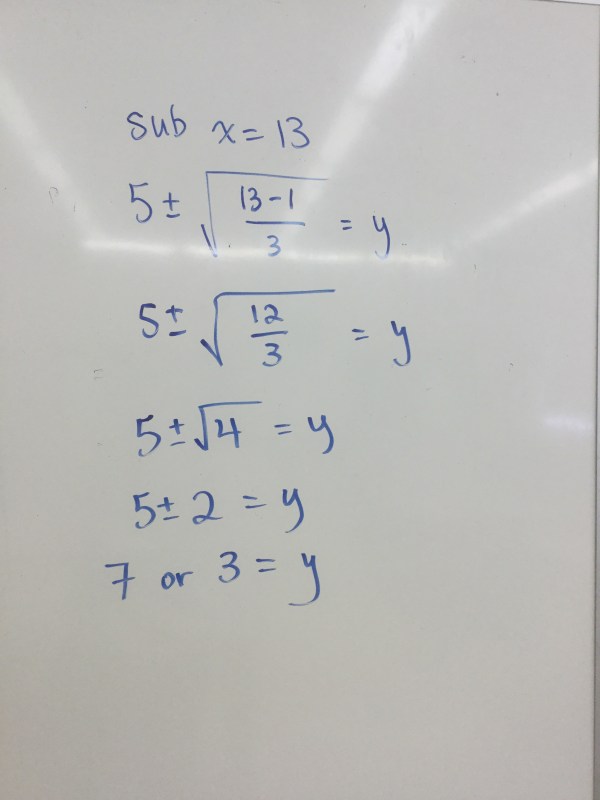 sub x = 13
5 ± √((13-1)/3) = y
5 ± √(12/3) = y
5 ± √4 = y
5 ± 2 = y
7 or 3 = y